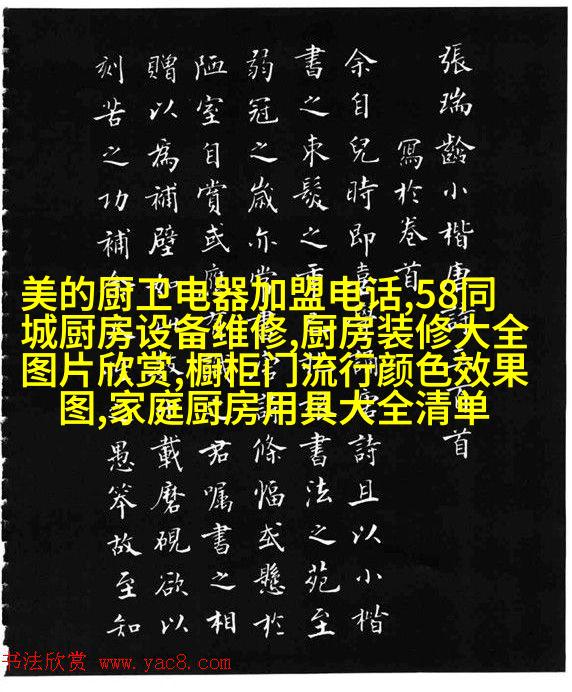 張瑞齡小楷唐詩三百首
寫於卷首
余自兒時即喜學詩且以小楷
書之束髮之書法之苑至
弱冠之歲亦常書條幅或懸於
陋室自賞或應君囑書之相
贈以為補壁如此載磨硯欲以
刻苦之功補愚笨故至知
美的厨卫电器加盟电话,58同
城厨房设备维修,厨房装修大全
图片欣赏,橱柜门流行颜色效果
图,家庭厨房用具大全清单
书法欣赏 www.yac8.com